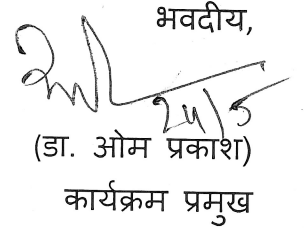 भवदीय,
(डा. ओम प्रकाश)
कार्यक्रम प्रमुख